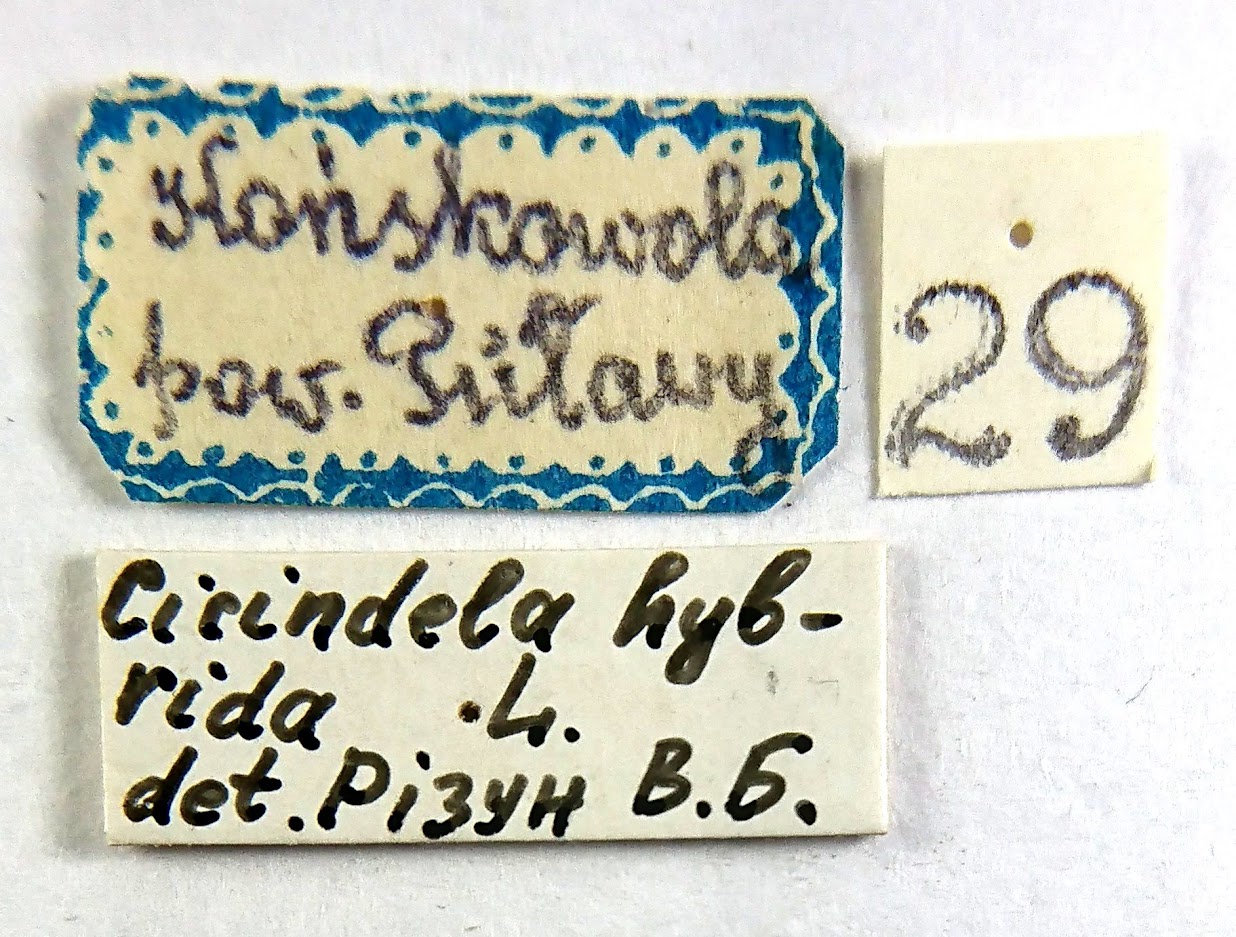 Końskowola
pow. Puławy
29
Cicindela hyb-
rida L.
det. Різун В.Б.